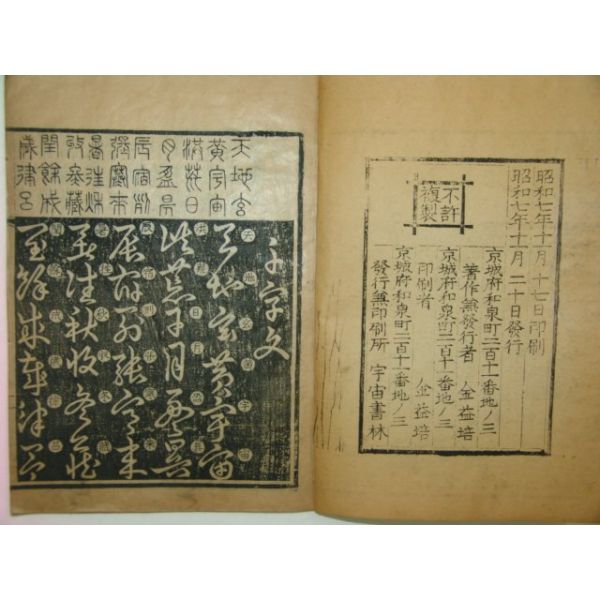 昭和七年十一月 十七日印刷
昭和七年十一月 二十日發行
不許
複製
京城府和泉町二百十一番地ノ三
著作兼發行者 金益培
京城府和泉町二百十一番地ノ三
印刷者 金益培
京城府和泉町二百十一番地ノ三
發行兼印刷所 宇宙書林
天地玄
黃宇宙
洪荒日
月盈昃
辰宿列
張寒來
暑往秋
收冬藏
閏餘成
歲律呂
千字文
天地玄黃宇宙
洪荒日月盈昃
辰宿列張寒來
暑往秋收冬藏
閏餘成歲律呂